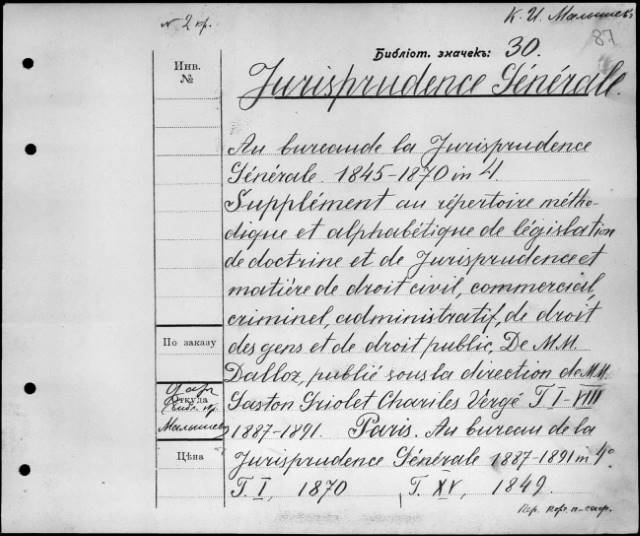 № 2 кр.
К. И. Малышев.
87
Библіот. значекъ: 30.
Инв.
№
Jurisprudence Générale.
Au bureau de la Jurisprudence
Générale 1845-1870 in 4
Supplément au répertoire métho-
dique et alphabétique de législation
de doctrine et de Jurisprudence et
matière de droit civil, commercial,
criminel, administratif, de droit
des gens et de droit public, De MM.
Dalloz, publié sous la direction de MM.
Gaston Griolet Chariles Vergé T I-VIII
1887-1891. Paris. Au bureau de la
Jurisprudence Générale 1887-1891 in 4°
T. I, 1870 T. XV, 1849.
По заказу
Даръ
Откуда
Малышев
Цѣна